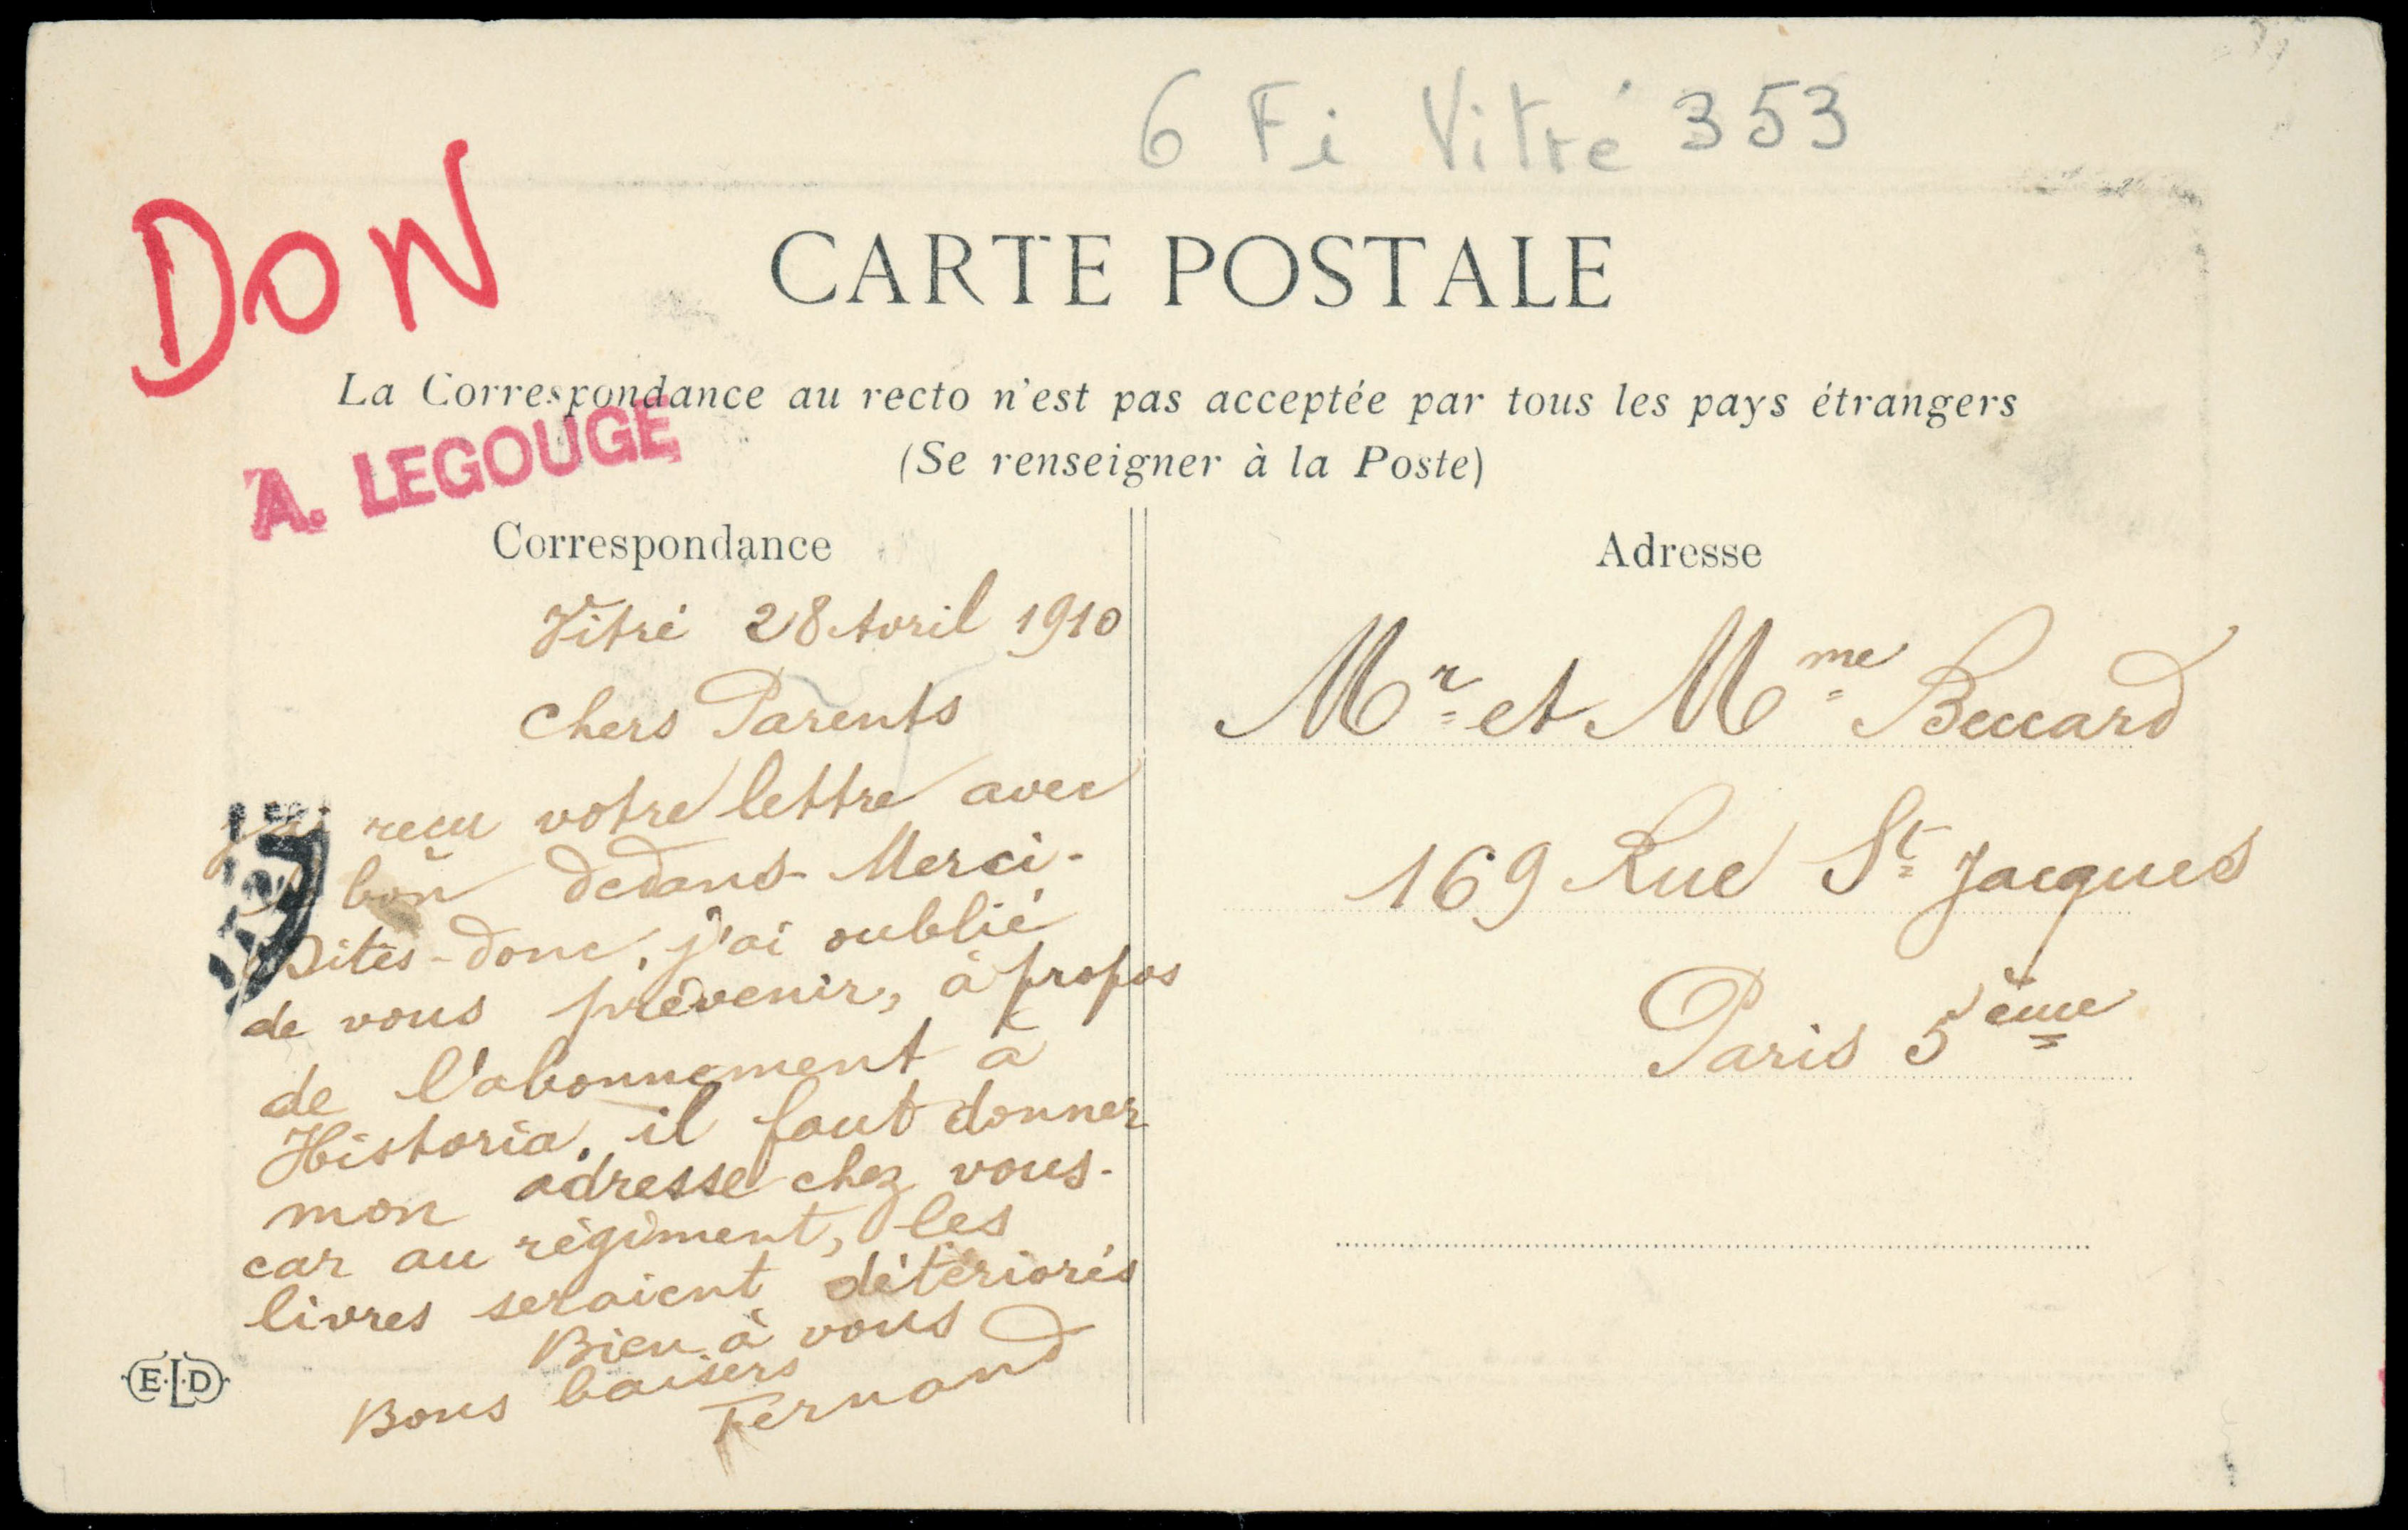 6 Fi Vitré 353
DON
CARTE POSTALE
La Correspondance au recto n'est pas acceptée par tous les pays étrangers
(Se renseigner à la Poste)
A. LEGOUGE
Correspondance
Vitré 28 Avril 1910
Chers Parents
j'ai reçu votre lettre avec
bon dedans - Merci -
Dites-donc, j'ai oublié
de vous prévenir, à propos
de l'abonnement à
Historia, il faut donner
mon adresse chez vous -
car au régiment, les
livres seraient détériorés
Bien à vous
Bons baisers
Fernand
E.L.D
Adresse
Mr et Mme Beccard
169 Rue St Jacques
Paris 5ème